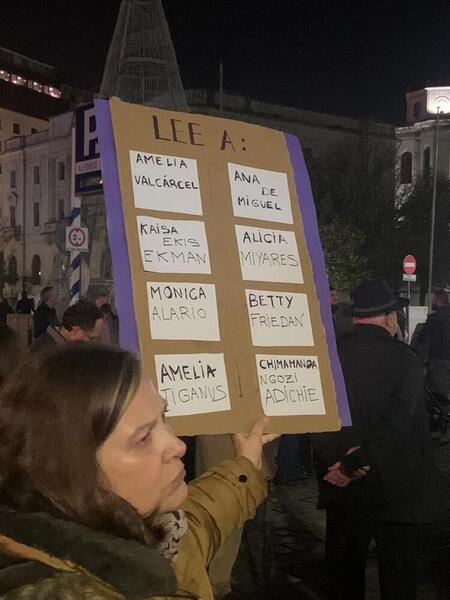 LEE A:
AMELIA
VALCÁRCEL
ANA
DE
MIGUEL
KAISA
EKIS
EKMAN
ALICIA
MIYARES
MONICA
ALARIO
BETTY
FRIEDAN
AMELIA
TIGANUS
CHIMAMANDA
NGOZI
ADICHIE
P